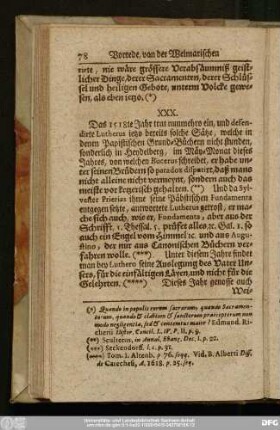 78 Vorrede, von der Weimarischen
rete, nie wäre grössere Verabsäumniß geist-
licher Dinge, derer Sacramenten, derer Schlüs-
sel und heiligen Gebote, unterm Volcke gewe-
sen, als eben ietzo. (*)
XXX.
Das 1518te Jahr trat nunmehro ein, und defen-
dirte Lutherus ietzo bereits solche Sätze, welche in
denen Papistischen Grund-Büchern nicht stunden,
sonderlich in Heydelberg, im May-Monat dieses
Jahres, von welchen Bucerus schreibet, er habe un-
ter seinen Brüdern so paradox disputiret, daß man
nicht alleine nicht vermeynt, sondern auch das
meiste vor ketzerisch gehalten. (**) Und da Syl-
vester Prierias ihme seine Päbstischen Fundamenta
entgegen setzte, antwortete Lutherus getrost, er ma-
che sich auch, wie er, Fundamenta, aber aus der
Schrifft, 1. Thessal. 5. prüfet alles, 2c. Gal. 1. so
auch ein Engel vom Himmel 2c. und aus Augu-
stino, der nur aus Canonischen Büchern ver-
fahren wolle. (***) Unter diesem Jahre findet
man bey Luthero seine Auslegung des Vater Un-
sers, für die einfältigen Läyen, und nicht für die
Gelehrten. (****) Dieses Jahr genosse auch
Wei-
(*) Quando in populis rerum sacrarum, quando Sacramen-
torum, quando & clavium & sanctorum praeceptorum non
modo negligentia, sed & contemtus maior? Edmund. Ri-
cherii Histor. Concil. L. IV. P. II. p. 9.
(**) Scultetus, in Annal. Evang. Dec. I. p. 22.
(***) Seckendorff. l. c. p. 31.
(****) Tom. I. Altenb. p. 76. seqq. Vid. B. Alberti Diss.
de Catechesi, A. 1618. p. 25. seq.